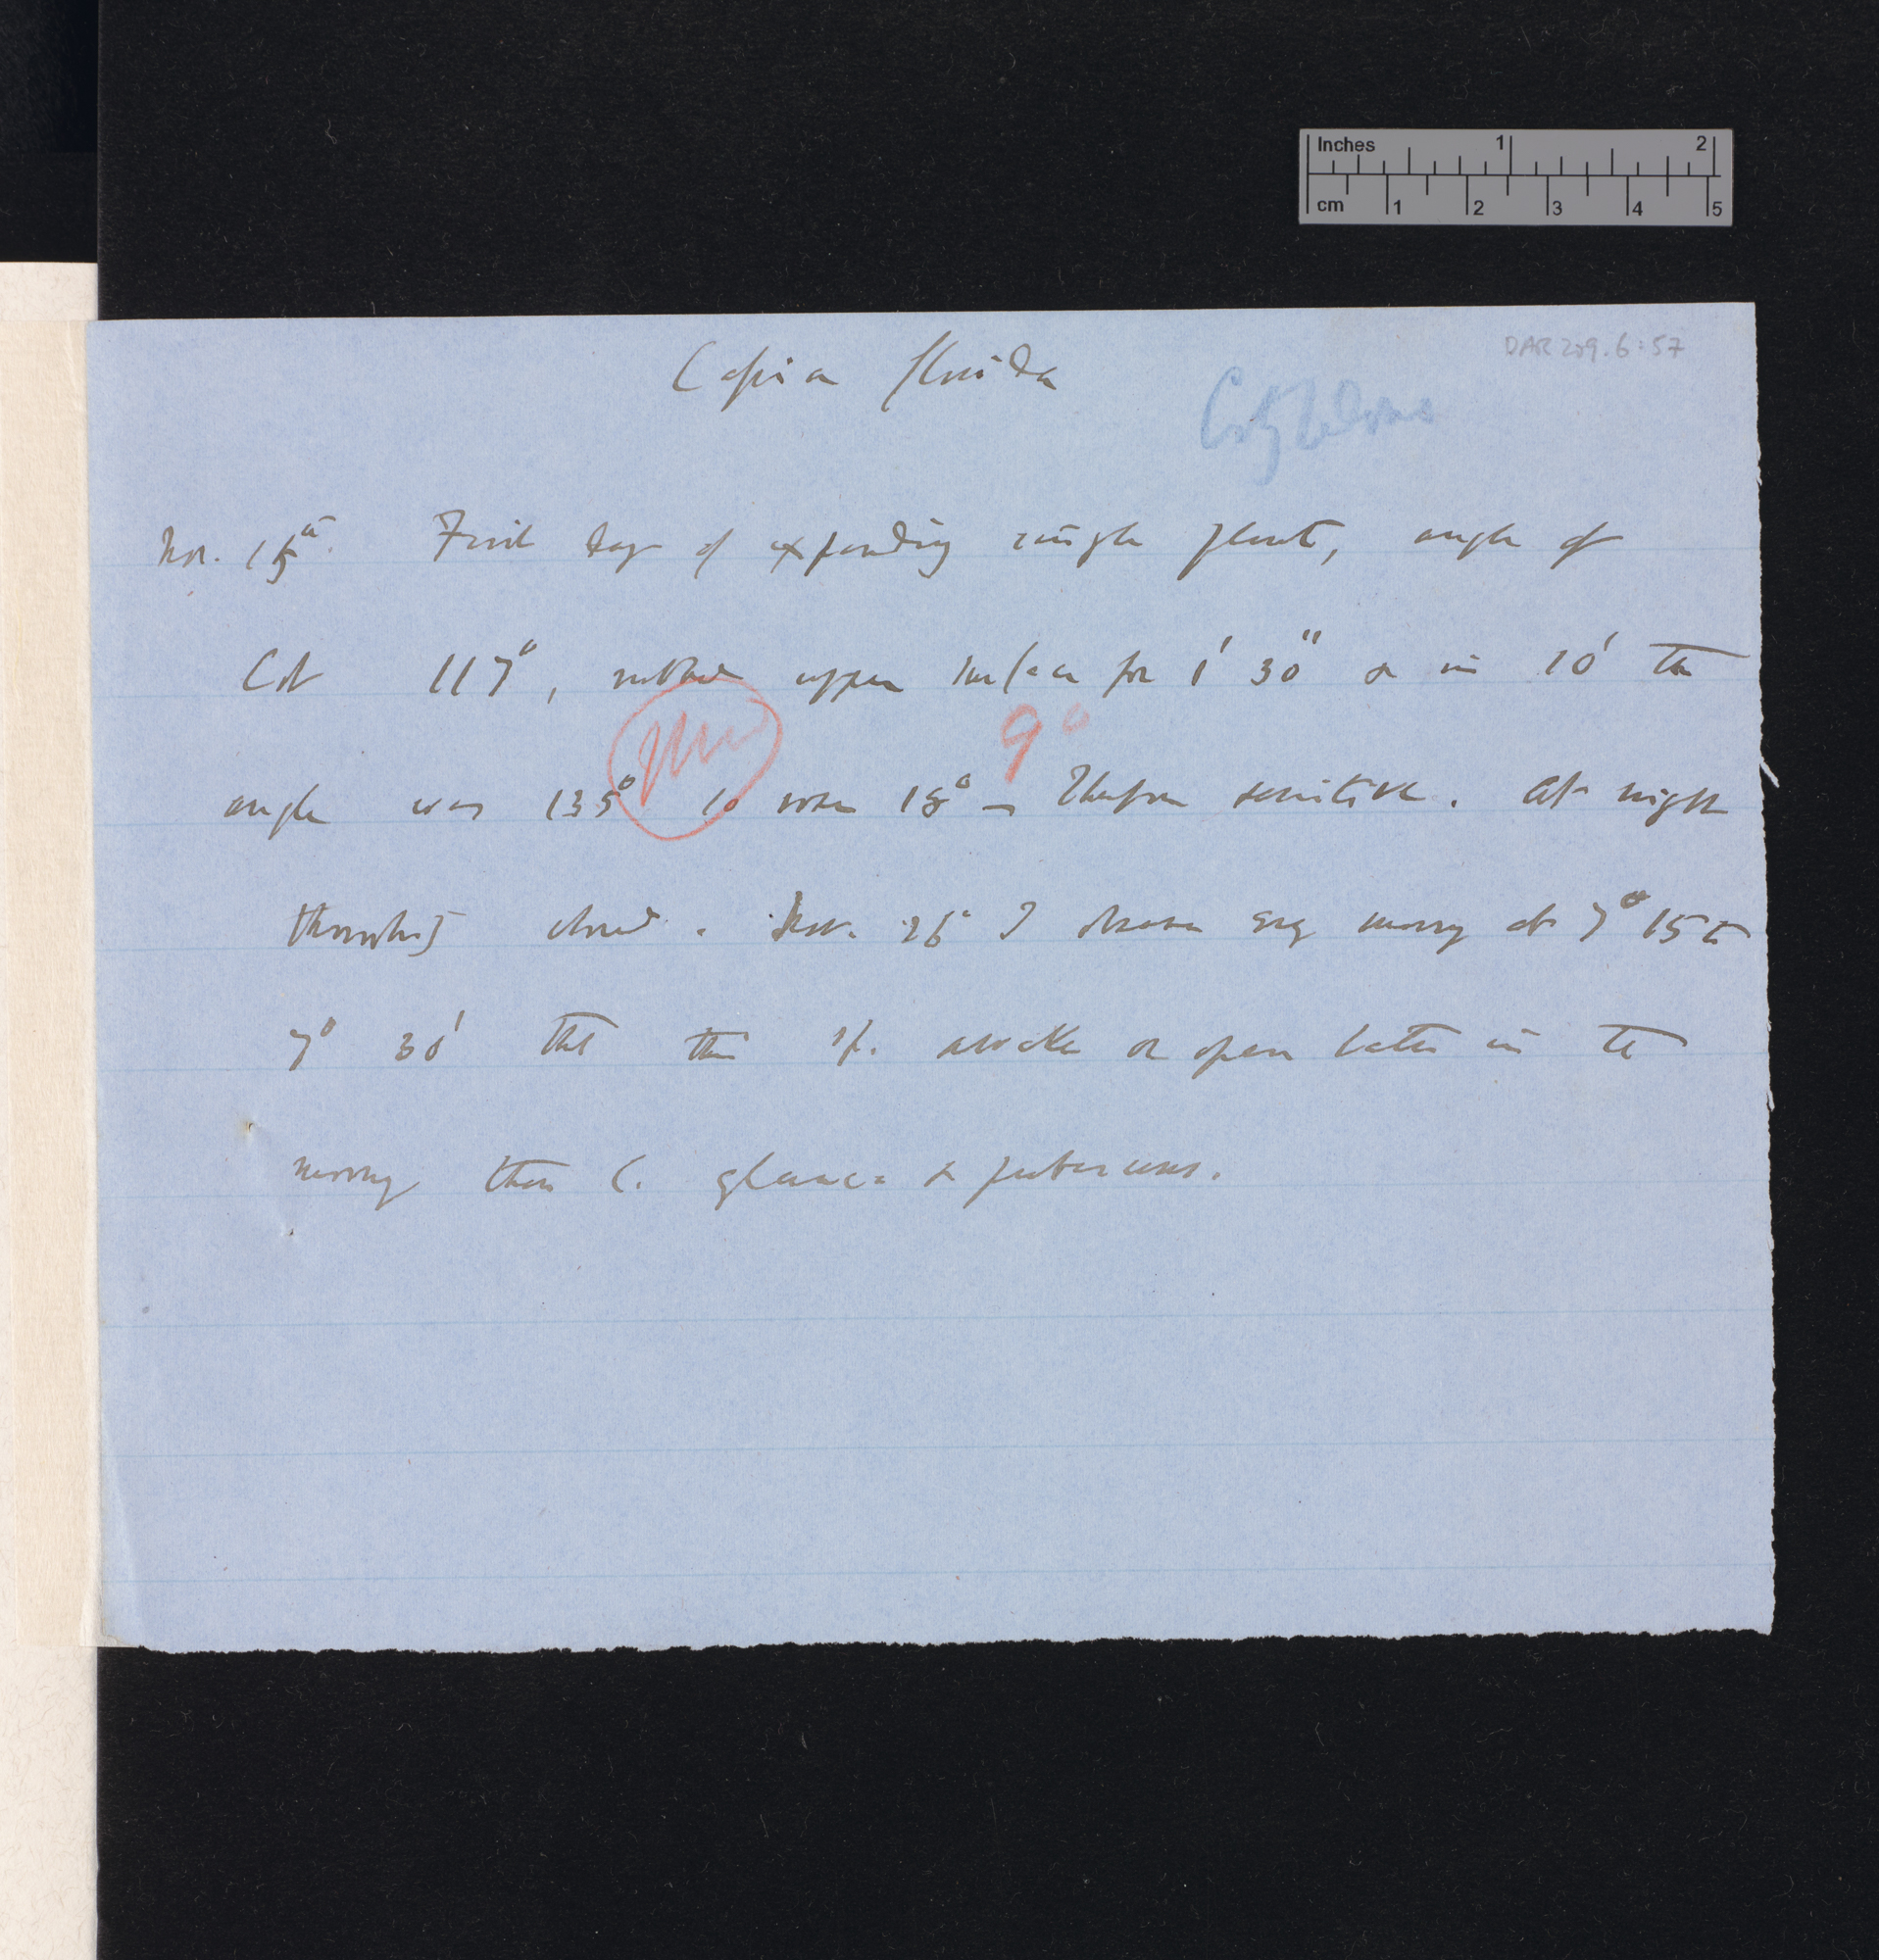 Inches 1 2
cm 1 2 3 4 5
DAR 209.6:57
Cassia florida
Cotyledons
Nov. 15th. First day of expanding single plant, angle of
Cot 117°, rubbed upper surface for 1' 30" & in 10' the
9°
angle was 135° so rose 18° — Therefore sensitive. At night
thoroughly closed. Nov. 26° I observe every morng at 7° 15 to
7° 30' that this sp. awakes or opens later in the
morng than C. glauca & pubescens.